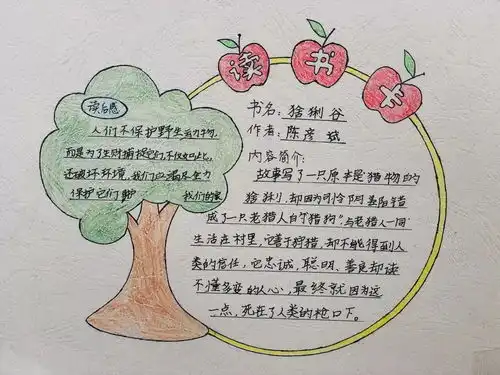 读书卡
读后感
人们不保护野生动物,
而是为了生财捕捉它们,不仅如此,
还破坏环境,我们应竭尽全力
保护它们
我们的家
书名:猞猁谷
作者:陈彦斌
内容简介:
故事写了一只原本是猎物的
猞猁,却因为引令阴差阳错
成了一只老猎人的"猎狗"与老猎人一同
生活在村里,它善于狩猎,却不能得到人
类的信任,它忠诚、聪明、善良却读
不懂多变的人心,最终就因为这
一点,死在了人类的枪口下。